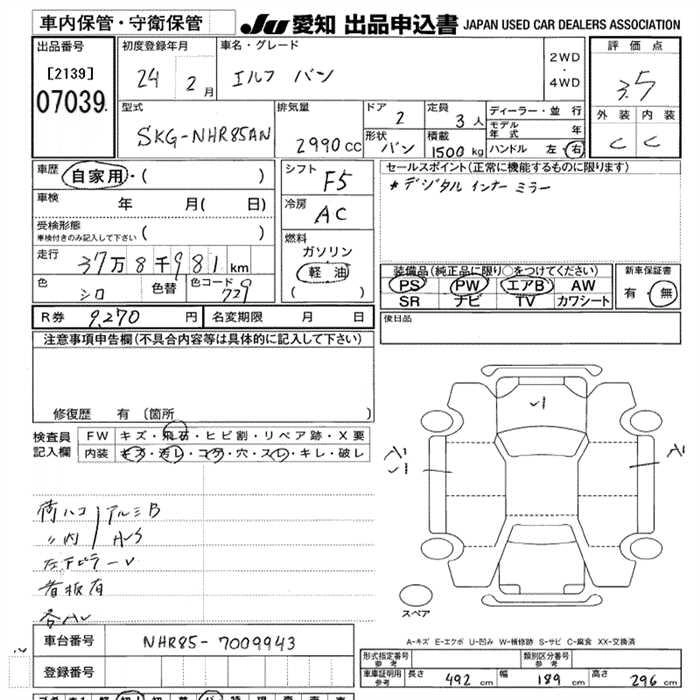 車内保管・守衛保管
JU 愛知 出品申込書 JAPAN USED CAR DEALERS ASSOCIATION
出品番号
[2139]
07039
初度登録年月
24 2月
車名・グレード
エルフ バン
2WD
・
4WD
評価点
3.5
外装 内装
C C
型式
SKG-NHR85AN
排気量
2990cc
ドア 2
形状 バン
定員 3人
積載 1500kg
ディーラー・並行
モデル年式 年
ハンドル 左・右
車歴 自家用・( )
車検 年 月( 日)
受検形態
車検付きのみ記入して下さい ( )
走行 37万8千981km
色 シロ 色替 色コード 729
シフト F5
冷房 AC
燃料
ガソリン
軽油
( )
セールスポイント(正常に機能するものに限ります)
*デジタルインナーミラー
装備品(純正品に限り○をつけてください)
PS PW エアB AW
SR ナビ TV カワシート
新車保証書
有・無
R券 9,270円 名変期限 月 日
後日品
注意事項申告欄(不具合内容等は具体的に記入して下さい)
修復歴 有 〔箇所 〕
検査員記入欄
FW キズ・飛石・ヒビ割・リペア跡・X要
内装 キズ・汚レ・コゲ・穴・スレ・キレ・破レ
荷ハコ アルミB
〃内 A・S
左下ピラーV
看板有
各A
✓1
A1
✓1
A1
スペア
A-キズ E-エクボ U-凹み W-補修跡 S-サビ C-腐食 XX-交換済
車台番号 NHR85-7009943
登録番号
形式指定番号 参考
類別区分番号 参考
車庫証明用 参考 長さ 492cm 幅 189cm 高さ 296cm